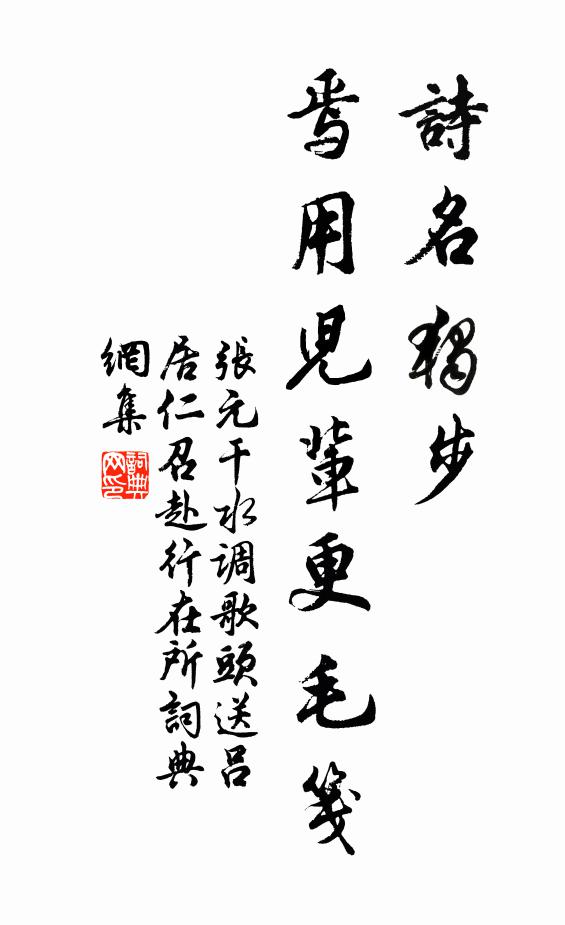 詩名獨步
焉用兒輩更毛箋
張元干水调歌頭送吕
居仁召赴行在所詞典
網集
詞典網印